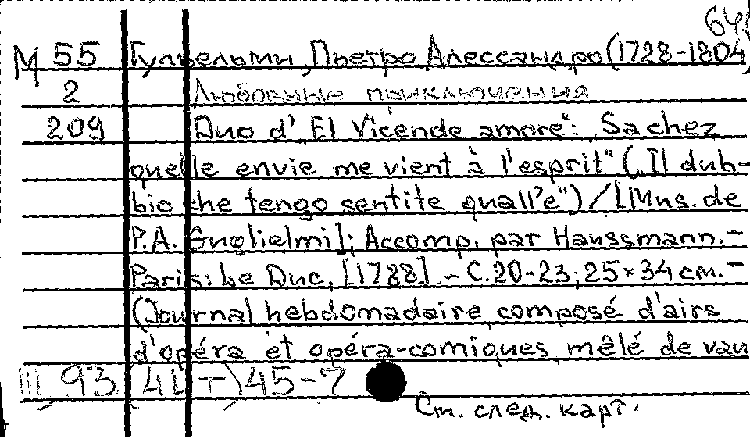 64
М 55 Гульельми, Пьетро Алессандро (1728-1804
2 Любовные приключения
209 Duo d' El Vicende amore": Sachez
quelle envie me vient à l'esprit" („Il dub-
bio che tengo sentite quall'e") / [Mus. de
P.A. Guglielmi]; Accomp. par Haussmann. –
Paris: Le Duc, [1788]. – С. 20-23; 25×34 см. –
(Journal hebdomadaire composé d'airs
d'opéra et opéra-comiques mêlé de vau
III 93 45-7
См. след. карт.